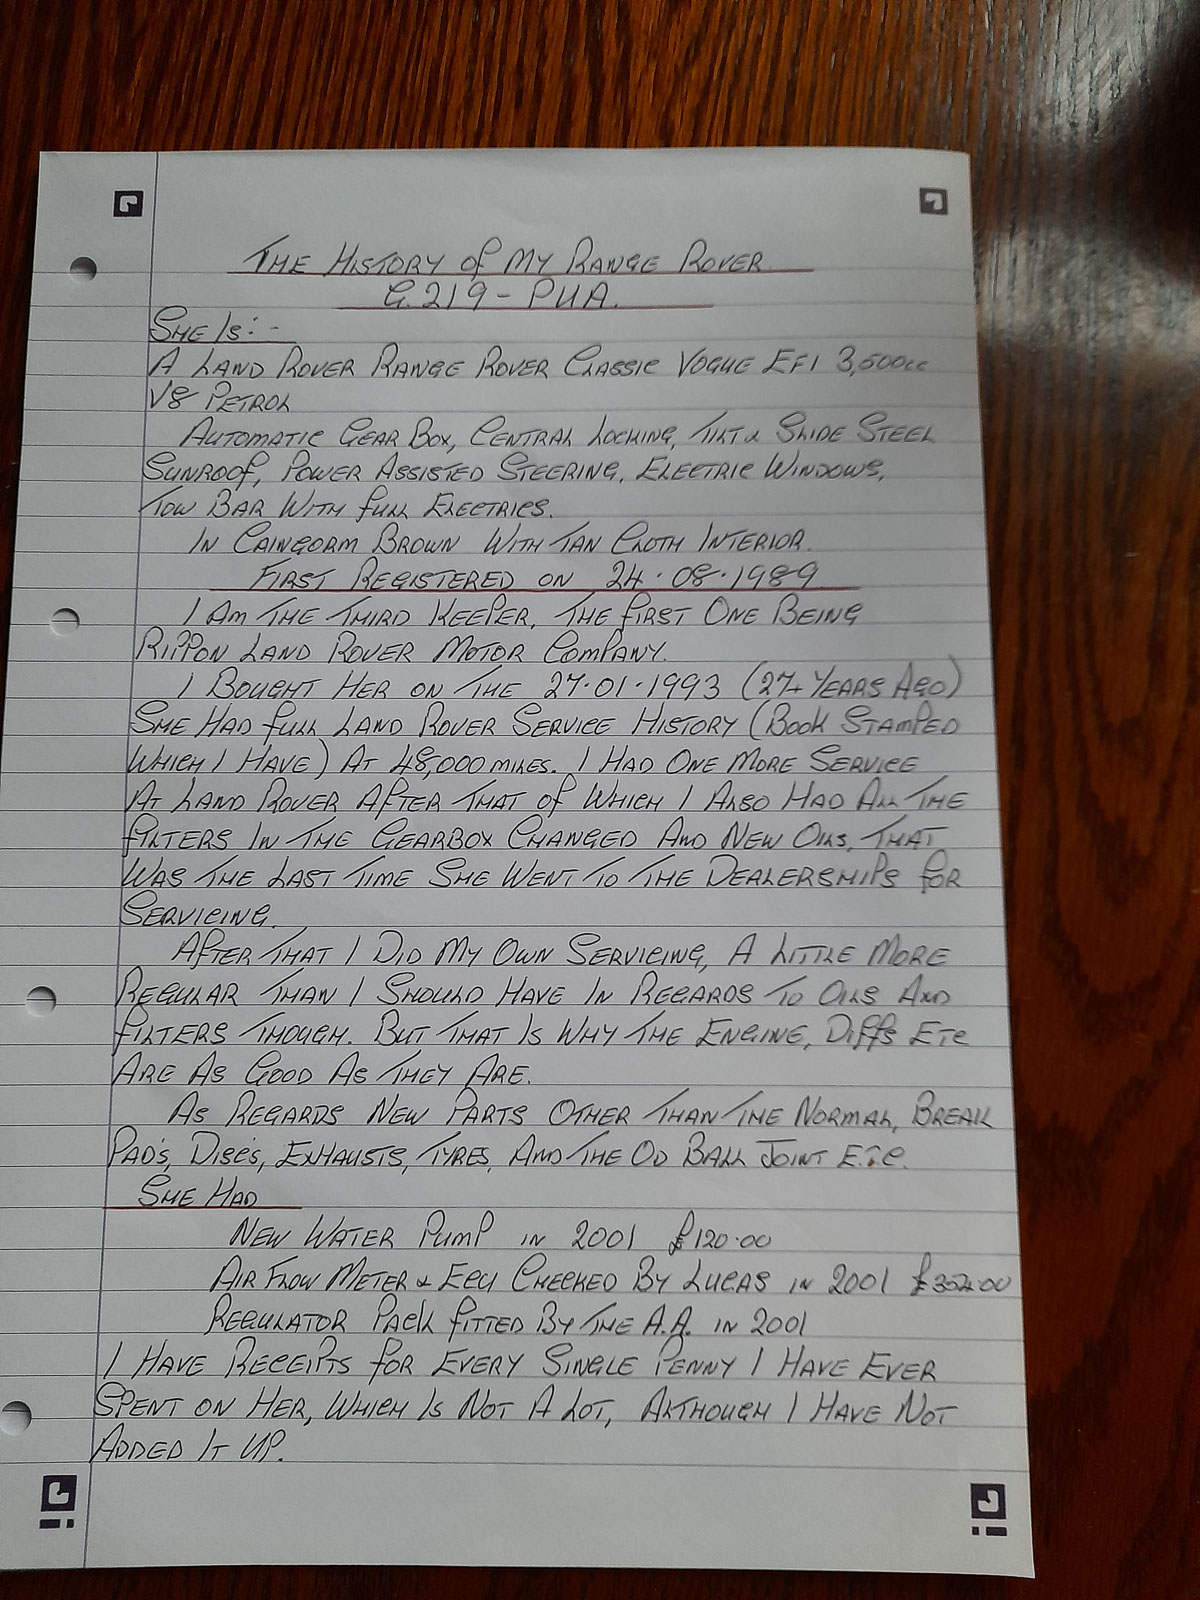 THE HISTORY OF MY RANGE ROVER.
G.219-PUA.
SHE IS:-
A LAND ROVER RANGE ROVER CLASSIC VOGUE EFI 3,500cc
V8 PETROL
AUTOMATIC GEAR BOX, CENTRAL LOCKING, TILT & SLIDE STEEL
SUNROOF, POWER ASSISTED STEERING, ELECTRIC WINDOWS,
TOW BAR WITH FULL ELECTRICS.
IN CAINGORM BROWN WITH TAN CLOTH INTERIOR.
FIRST REGISTERED ON 24.08.1989
I AM THE THIRD KEEPER, THE FIRST ONE BEING
RIPPON LAND ROVER MOTOR COMPANY.
I BOUGHT HER ON THE 27.01.1993 (27+ YEARS AGO)
SHE HAD FULL LAND ROVER SERVICE HISTORY (BOOK STAMPED
WHICH I HAVE) AT 48,000 MILES. I HAD ONE MORE SERVICE
AT LAND ROVER AFTER THAT OF WHICH I ALSO HAD ALL THE
FILTERS IN THE GEARBOX CHANGED AND NEW OILS, THAT
WAS THE LAST TIME SHE WENT TO THE DEALERSHIPS FOR
SERVICING.
AFTER THAT I DID MY OWN SERVICING, A LITTLE MORE
REGULAR THAN I SHOULD HAVE IN REGARDS TO OILS AND
FILTERS THOUGH. BUT THAT IS WHY THE ENGINE, DIFFS ETC
ARE AS GOOD AS THEY ARE.
AS REGARDS NEW PARTS OTHER THAN THE NORMAL, BREAK
PAD'S, DISC'S, EXHAUSTS, TYRES, AND THE OD BALL JOINT E.T.C.
SHE HAD
NEW WATER PUMP IN 2001 £120.00
AIR FLOW METER & ECU CHECKED BY LUCAS IN 2001
REGULATOR PACK FITTED BY THE A.A. IN 2001
I HAVE RECEIPTS FOR EVERY SINGLE PENNY I HAVE EVER
SPENT ON HER, WHICH IS NOT A LOT, ALTHOUGH I HAVE NOT
ADDED IT UP.